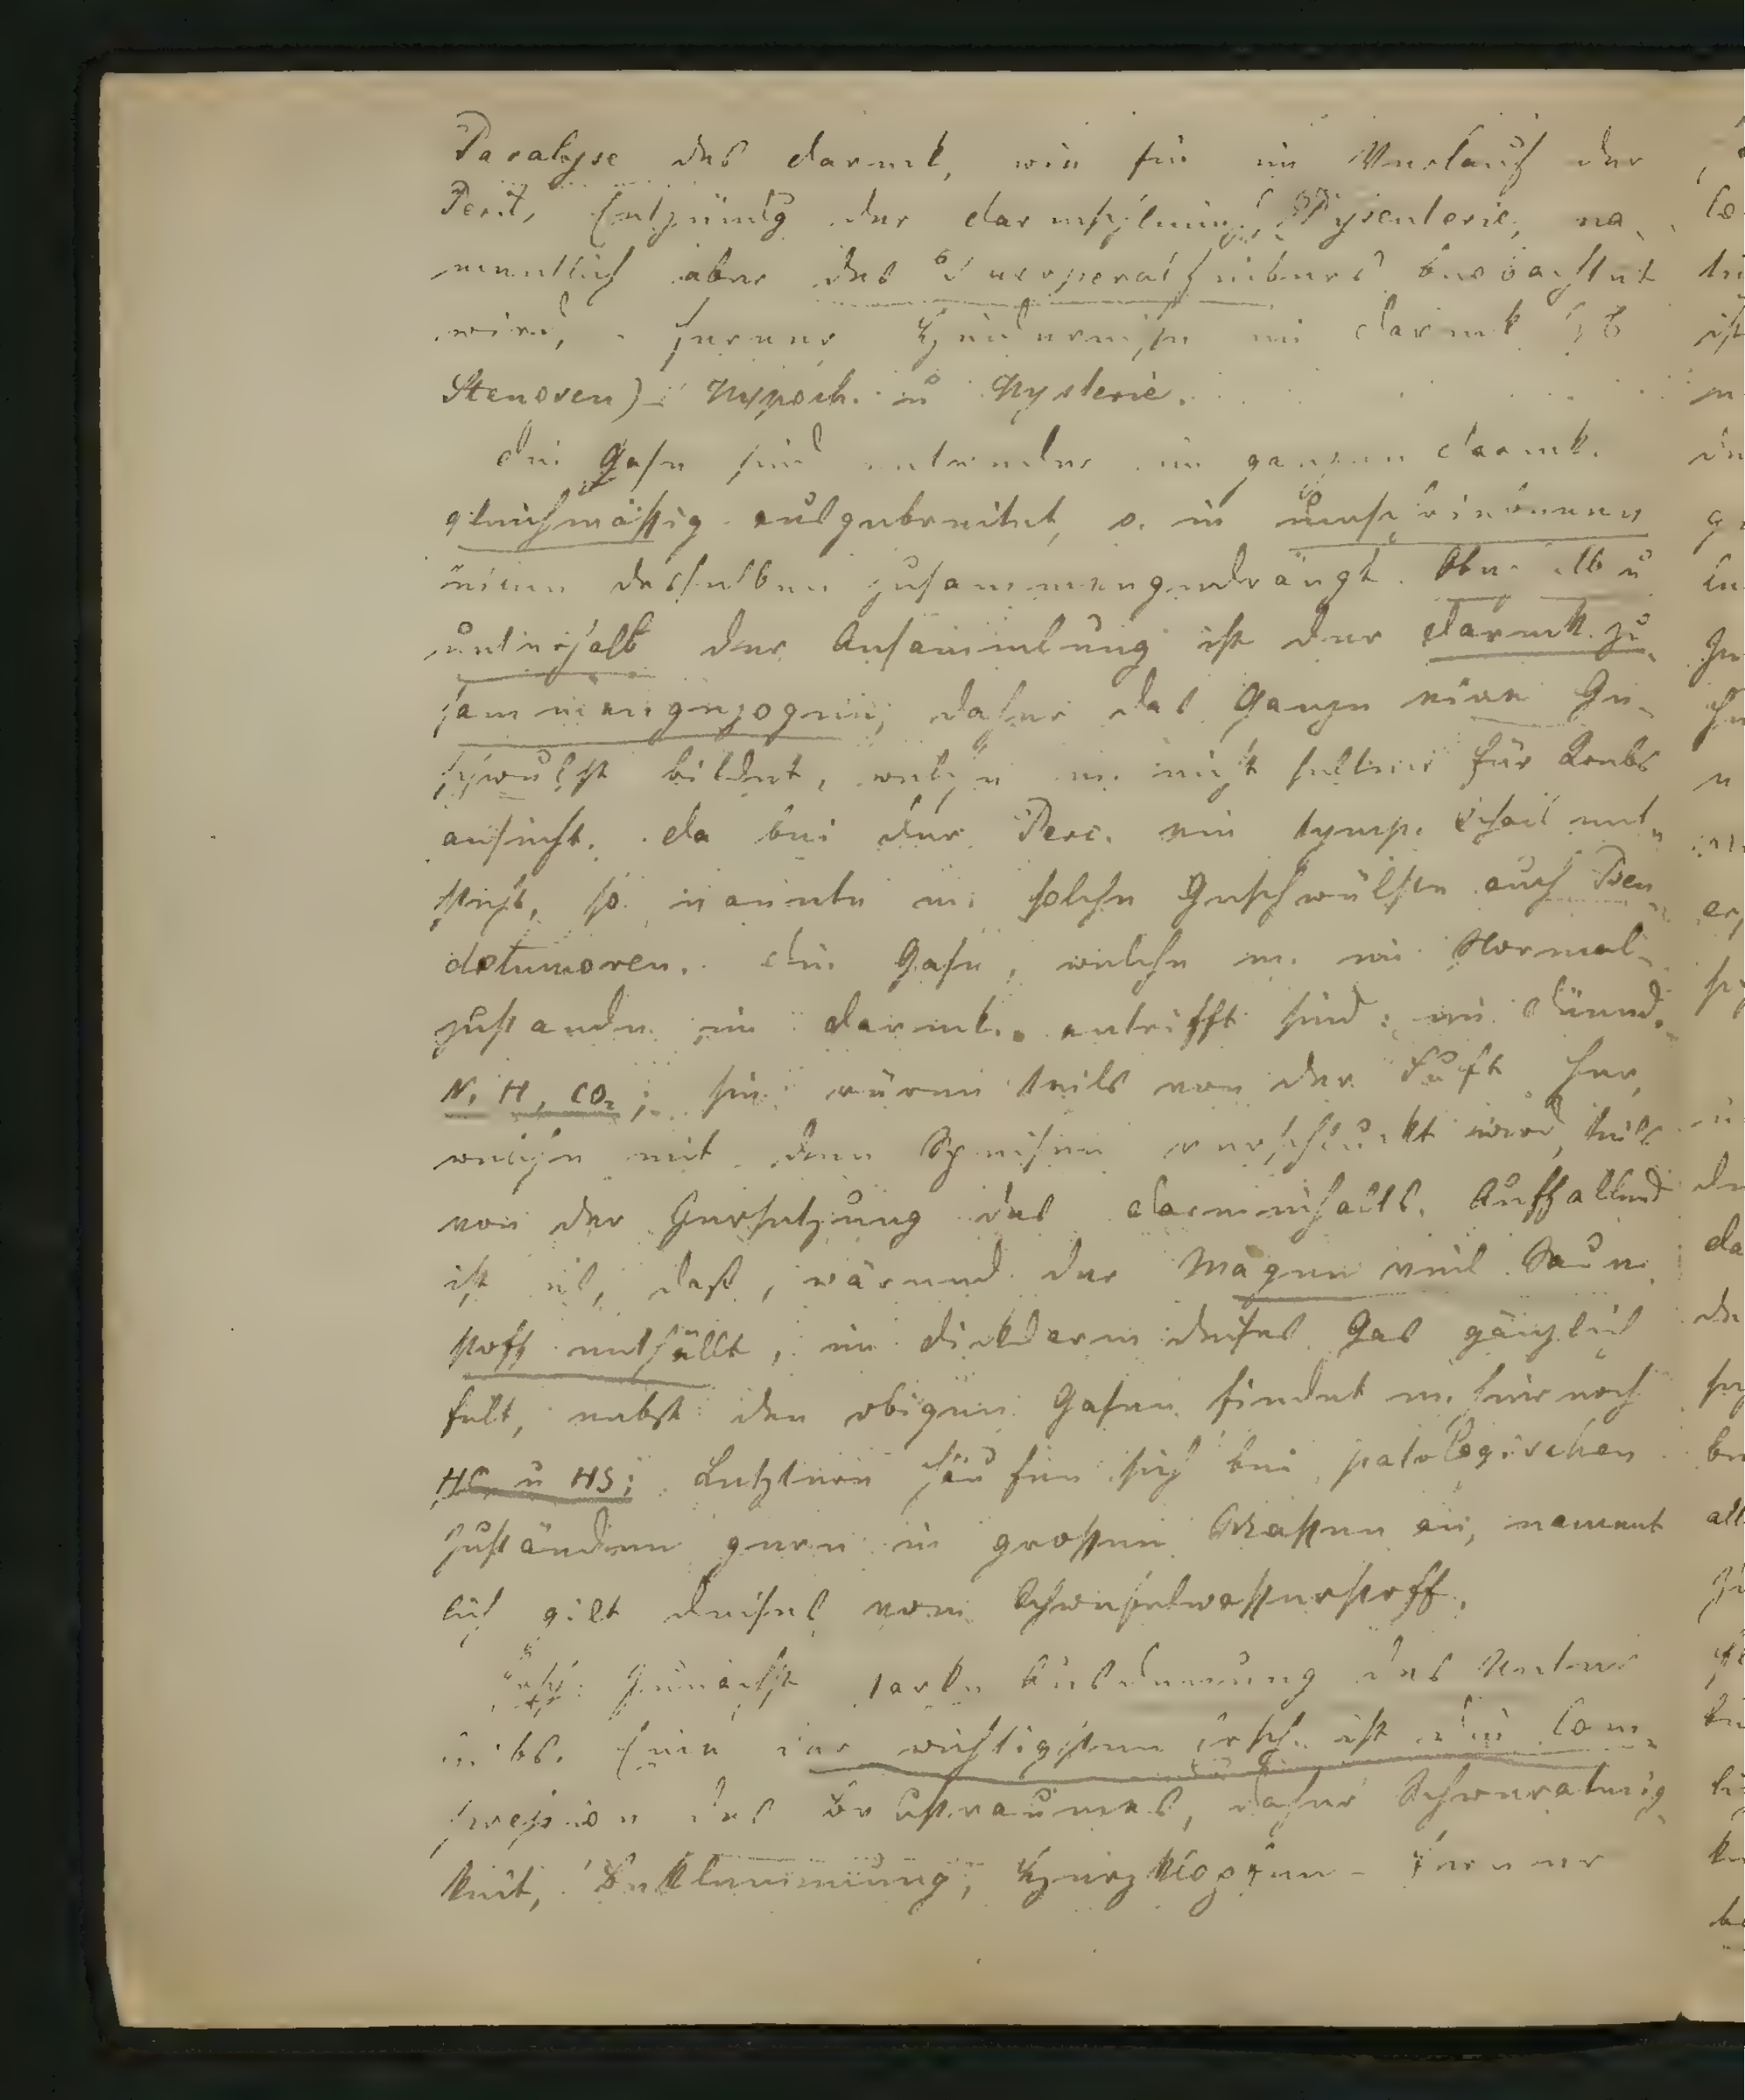 Paralyse des darmk, wie sie im Verlauf der
Perit, Entzündg der darmschleimh, Dysenterie, na-
mentlich aber des Puerperalfiebers beobachtet
wird, - ferner Hindernisse im darmk (z B
Stenosen) - Hypoch. u Hysterie.
die Gase sind entweder im ganzen darmk.
gleichmässig ausgebreitet, o. in
desselben zusammengedrängt. Oberhalb u
unterhalb der Ansammlung ist der darmk. zu-
sammengezogen, daher das Ganze eine Ge-
schwulst bildet, welche m. nicht selten für Krebs
ansieht. da bei der Perc. ein tymp. Schall ent-
steht, so nannte m. solche Geschwülste auch Pseu-
dotumoren. die Gase, welche m. im Normal-
zustande im darmk. antrifft sind: im Dünnd.
N, H, CO2; sie rüren teils von der Luft her,
welche mit den Speisen verschluckt wird, teils
von der Zersetzung des darminhalts. Auffallend
ist es, dass, wärend der Magen viel Sauer-
stoff enthällt, im dickdarm dieses Gas gänzlich
felt, nebst den obigen Gasen findet m. hier noch
HC u HS; Letztere häufen sich bei patologischen
Zuständen gern in grossen Massen an, nament
lich gilt dieses vom Schwefelwasserstoff.
Zunächst starke Ausdennung des Unter-
leibs. Eine der wichtigsten Ersch. ist die Com-
pression des Brustraumes, daher Schweratmig-
keit, Beklemmung, Herzklopfen - ferner